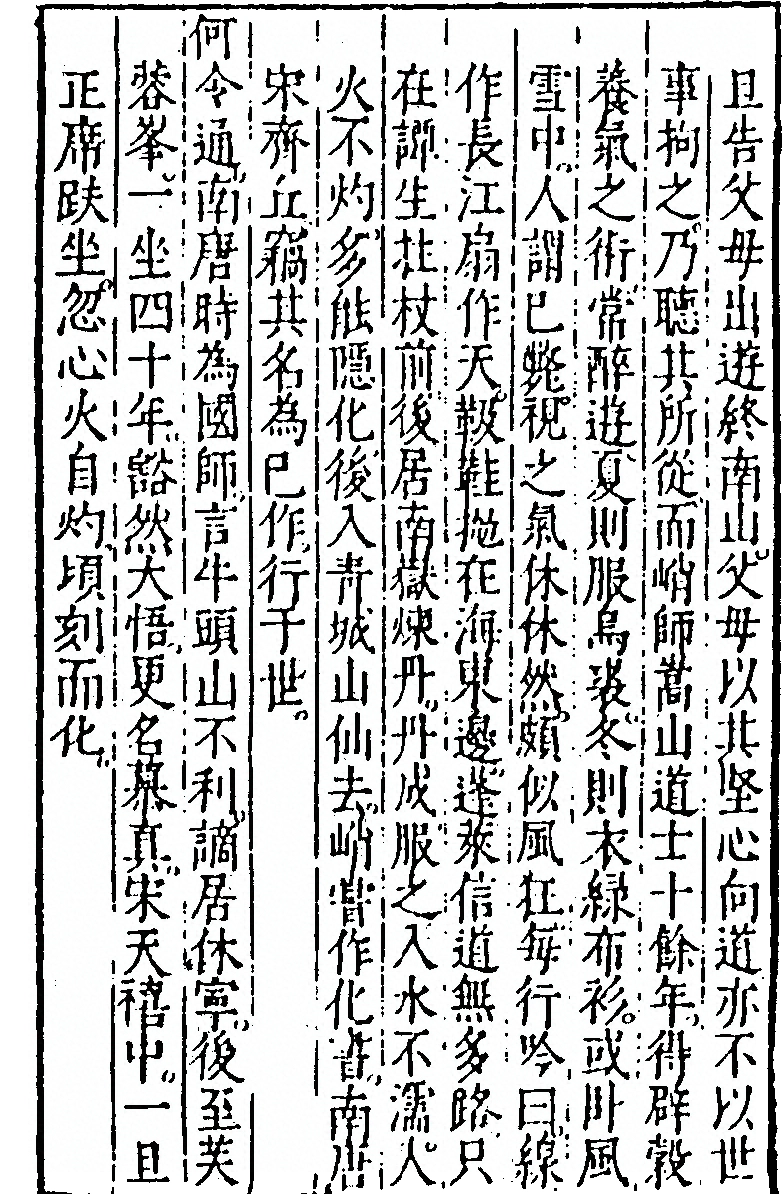 旦告父母出遊終南山父母以其堅心向道亦不以世
事拘之乃聽其所從而峭師嵩山道士十餘年得辟穀
養氣之術常醉遊夏則服烏裘冬則衣綠布衫或卧風
雪中人謂已斃視之氣休休然頗似風狂每行吟曰線
作長江扇作天靸鞋抛在海東邊蓬萊信道無多路只
在譚生拄杖前後居南嶽煉丹丹成服之入水不濡入
火不灼多能隱化後入青城山仙去峭嘗作化書南唐
宋齊丘竊其名為己作行于世
何令通南唐時為國師言牛頭山不利謫居休寧後至芙
蓉峯一坐四十年豁然大悟更名慕真宋天禧中一旦
正席趺坐忽心火自灼頃刻而化